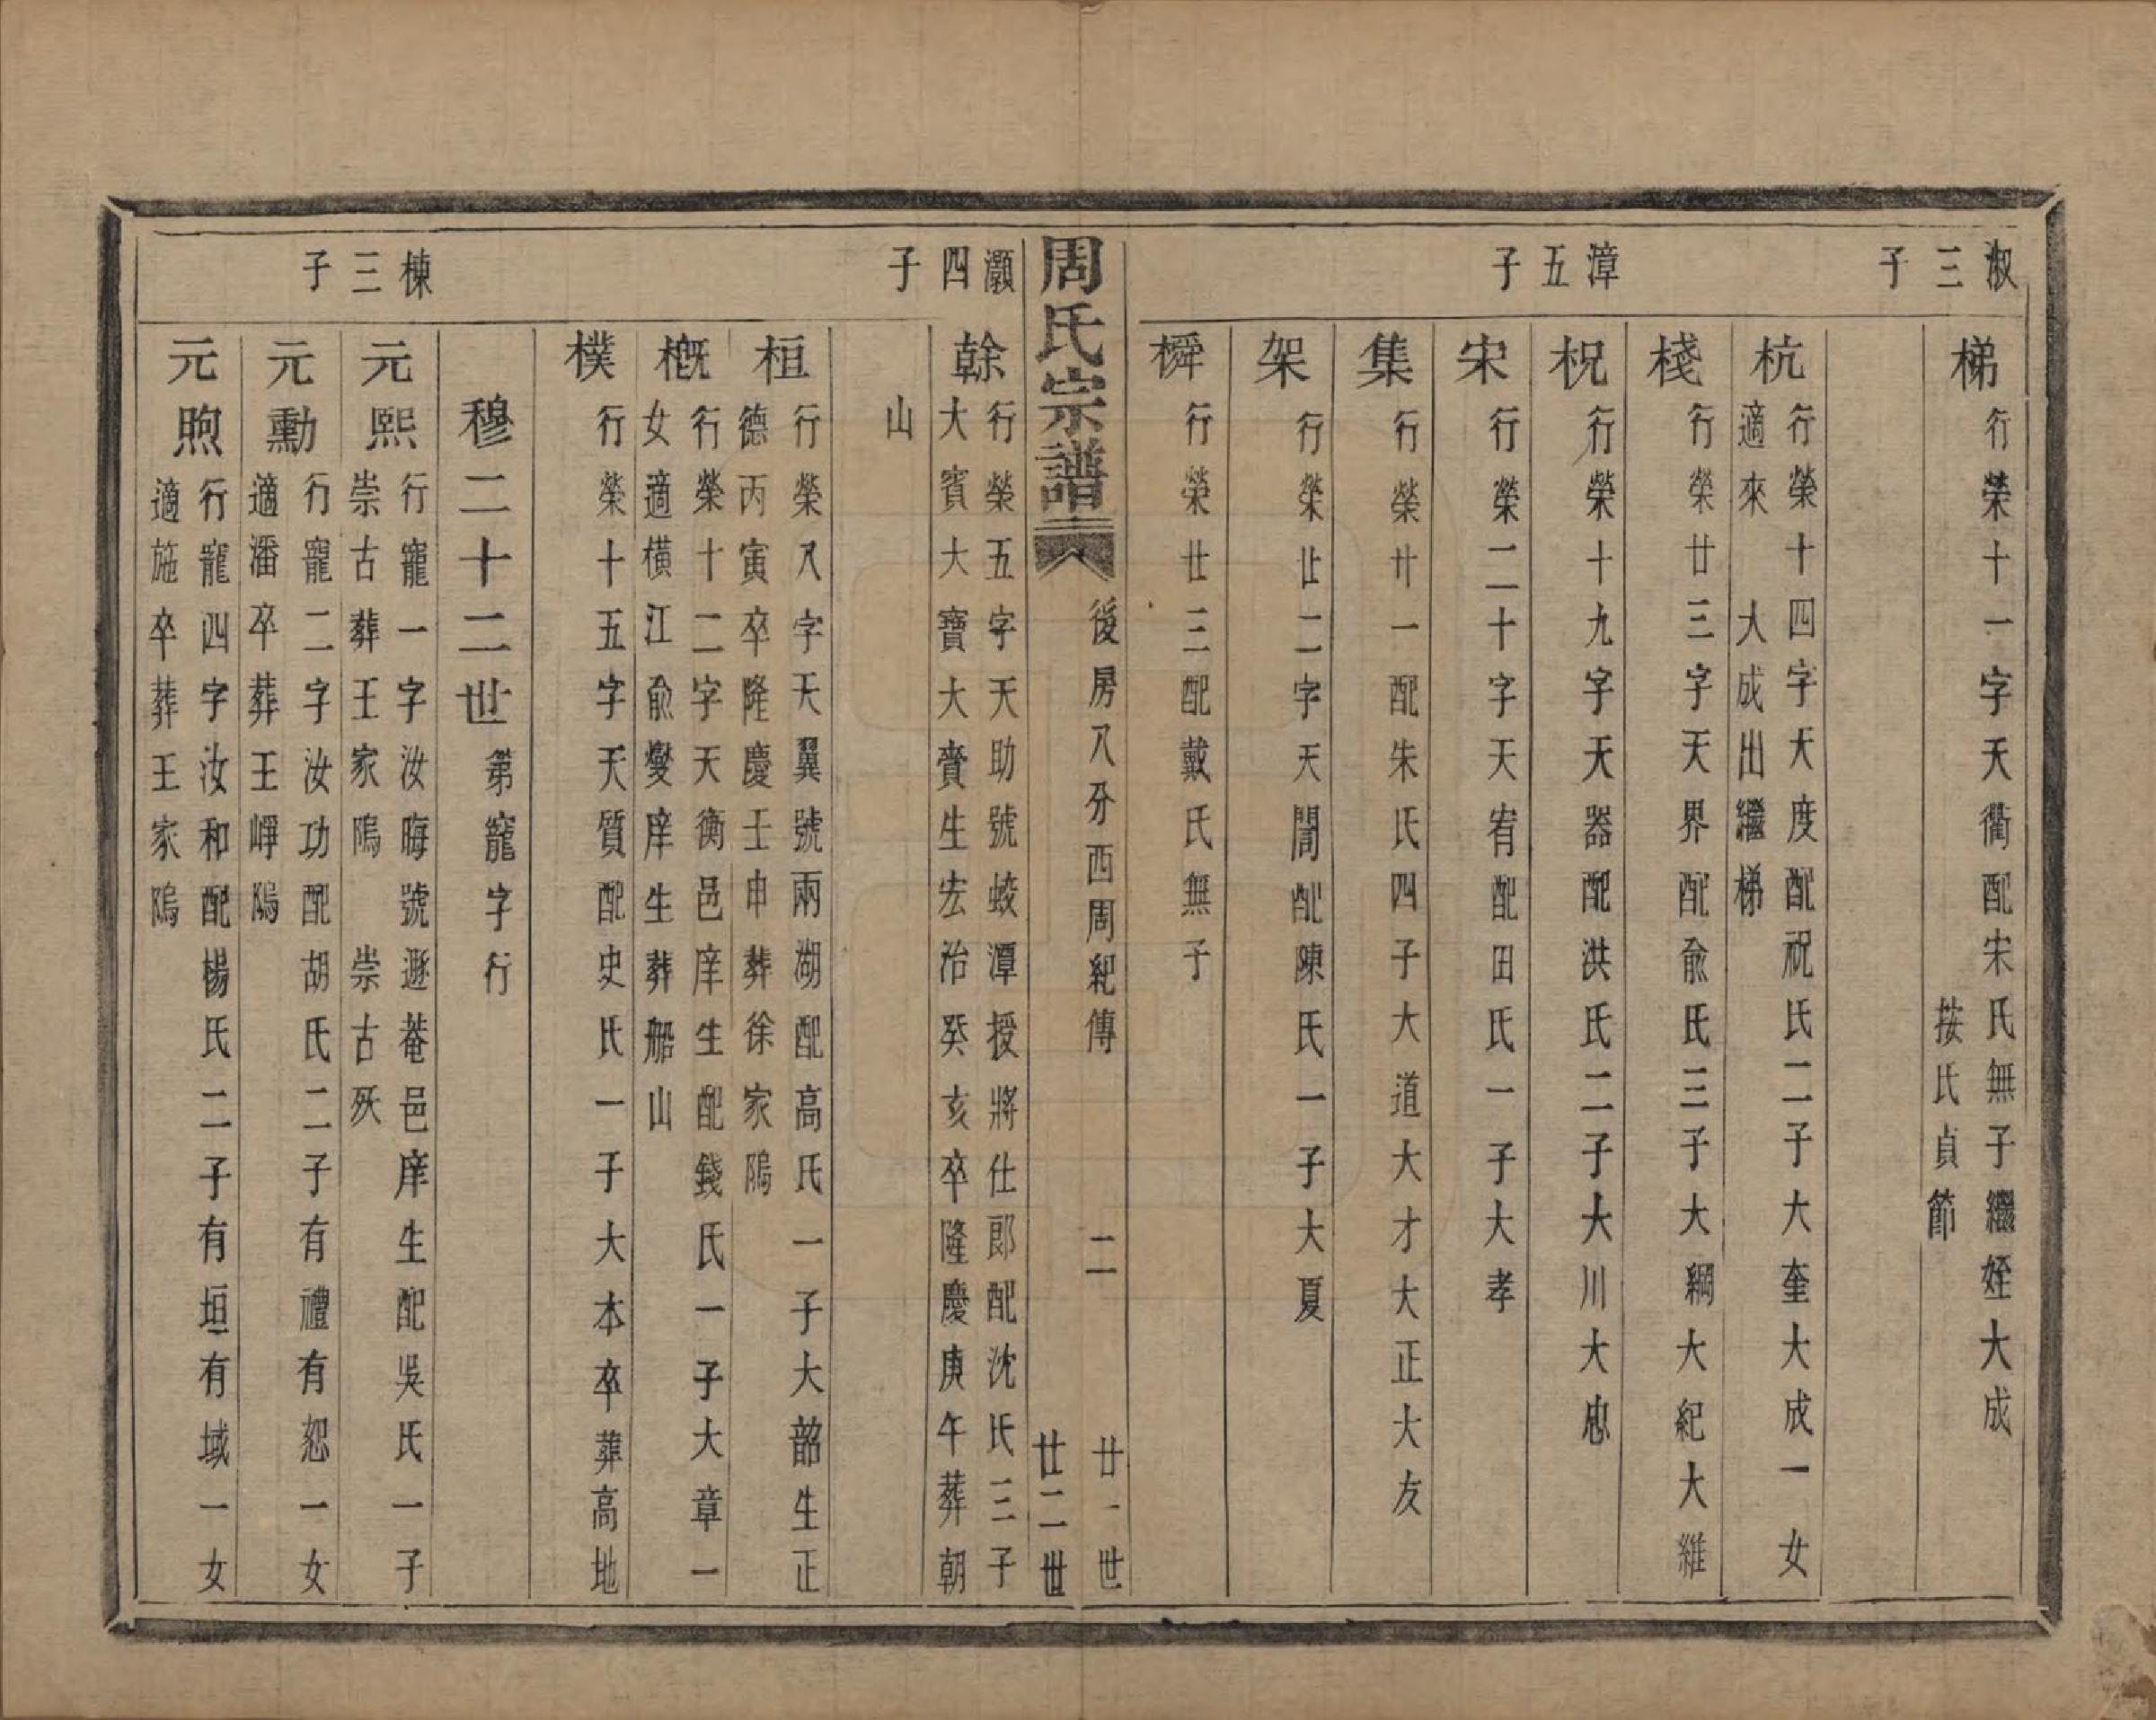 淑三子
梯 行榮十一字天衢配宋氏無子繼姪大成
按氏貞節
杭 行榮十四字天度配祝氏二子大奎大成一女
適來 大成出繼梯
漳五子
棧 行榮廿三字天界配俞氏三子大綱大紀大維
柷 行榮十九字天器配洪氏二子大川大忠
宋 行榮二十字天宥配田氏一子大孝
集 行榮廿一配朱氏四子大道大才大正大友
架 行榮廿二字天閣配陳氏一子大夏
橓 行榮廿三配戴氏無子
周氏宗譜 後房八分西周紀傳 二 廿一世
廿二世
灝四子
榦 行榮五字天助號蛟潭授將仕郎配沈氏三子
大賓大寶大賚生宏治癸亥卒隆慶庚午葬朝
山
桓 行榮八字天翼號兩湖配高氏一子大韶生正
德丙寅卒隆慶壬申葬徐家隖
概 行榮十二字天衡邑庠生配錢氏一子大章一
女適橫江俞燮庠生葬船山
樸 行榮十五字天質配史氏一子大本卒葬高地
穆二十二世 第寵字行
棟三子
元熙 行寵一字汝晦號遯菴邑庠生配吳氏一子
崇古葬王家隖 崇古歿
元勳 行寵二字汝功配胡氏二子有禮有恕一女
適潘卒葬王崢隖
元煦 行寵四字汝和配楊氏二子有垣有域一女
適施卒葬王家隖